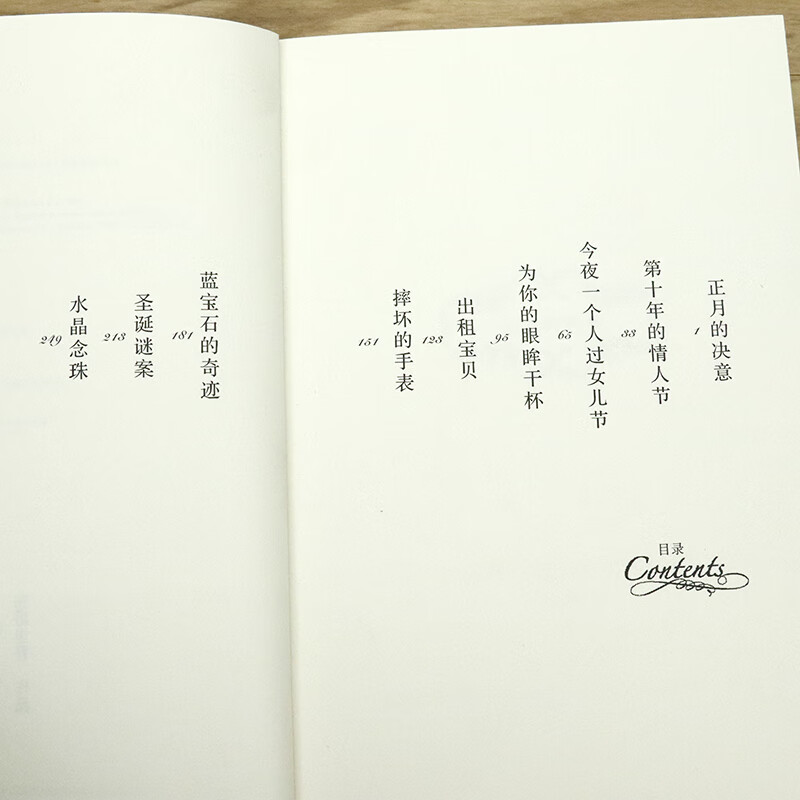 目录
Contents
正月的决意
1
第十年的情人节
33
今夜一个人过女儿节
65
为你的眼眸干杯
95
出租宝贝
123
摔坏的手表
151
蓝宝石的奇迹
181
圣诞谜案
213
水晶念珠
249